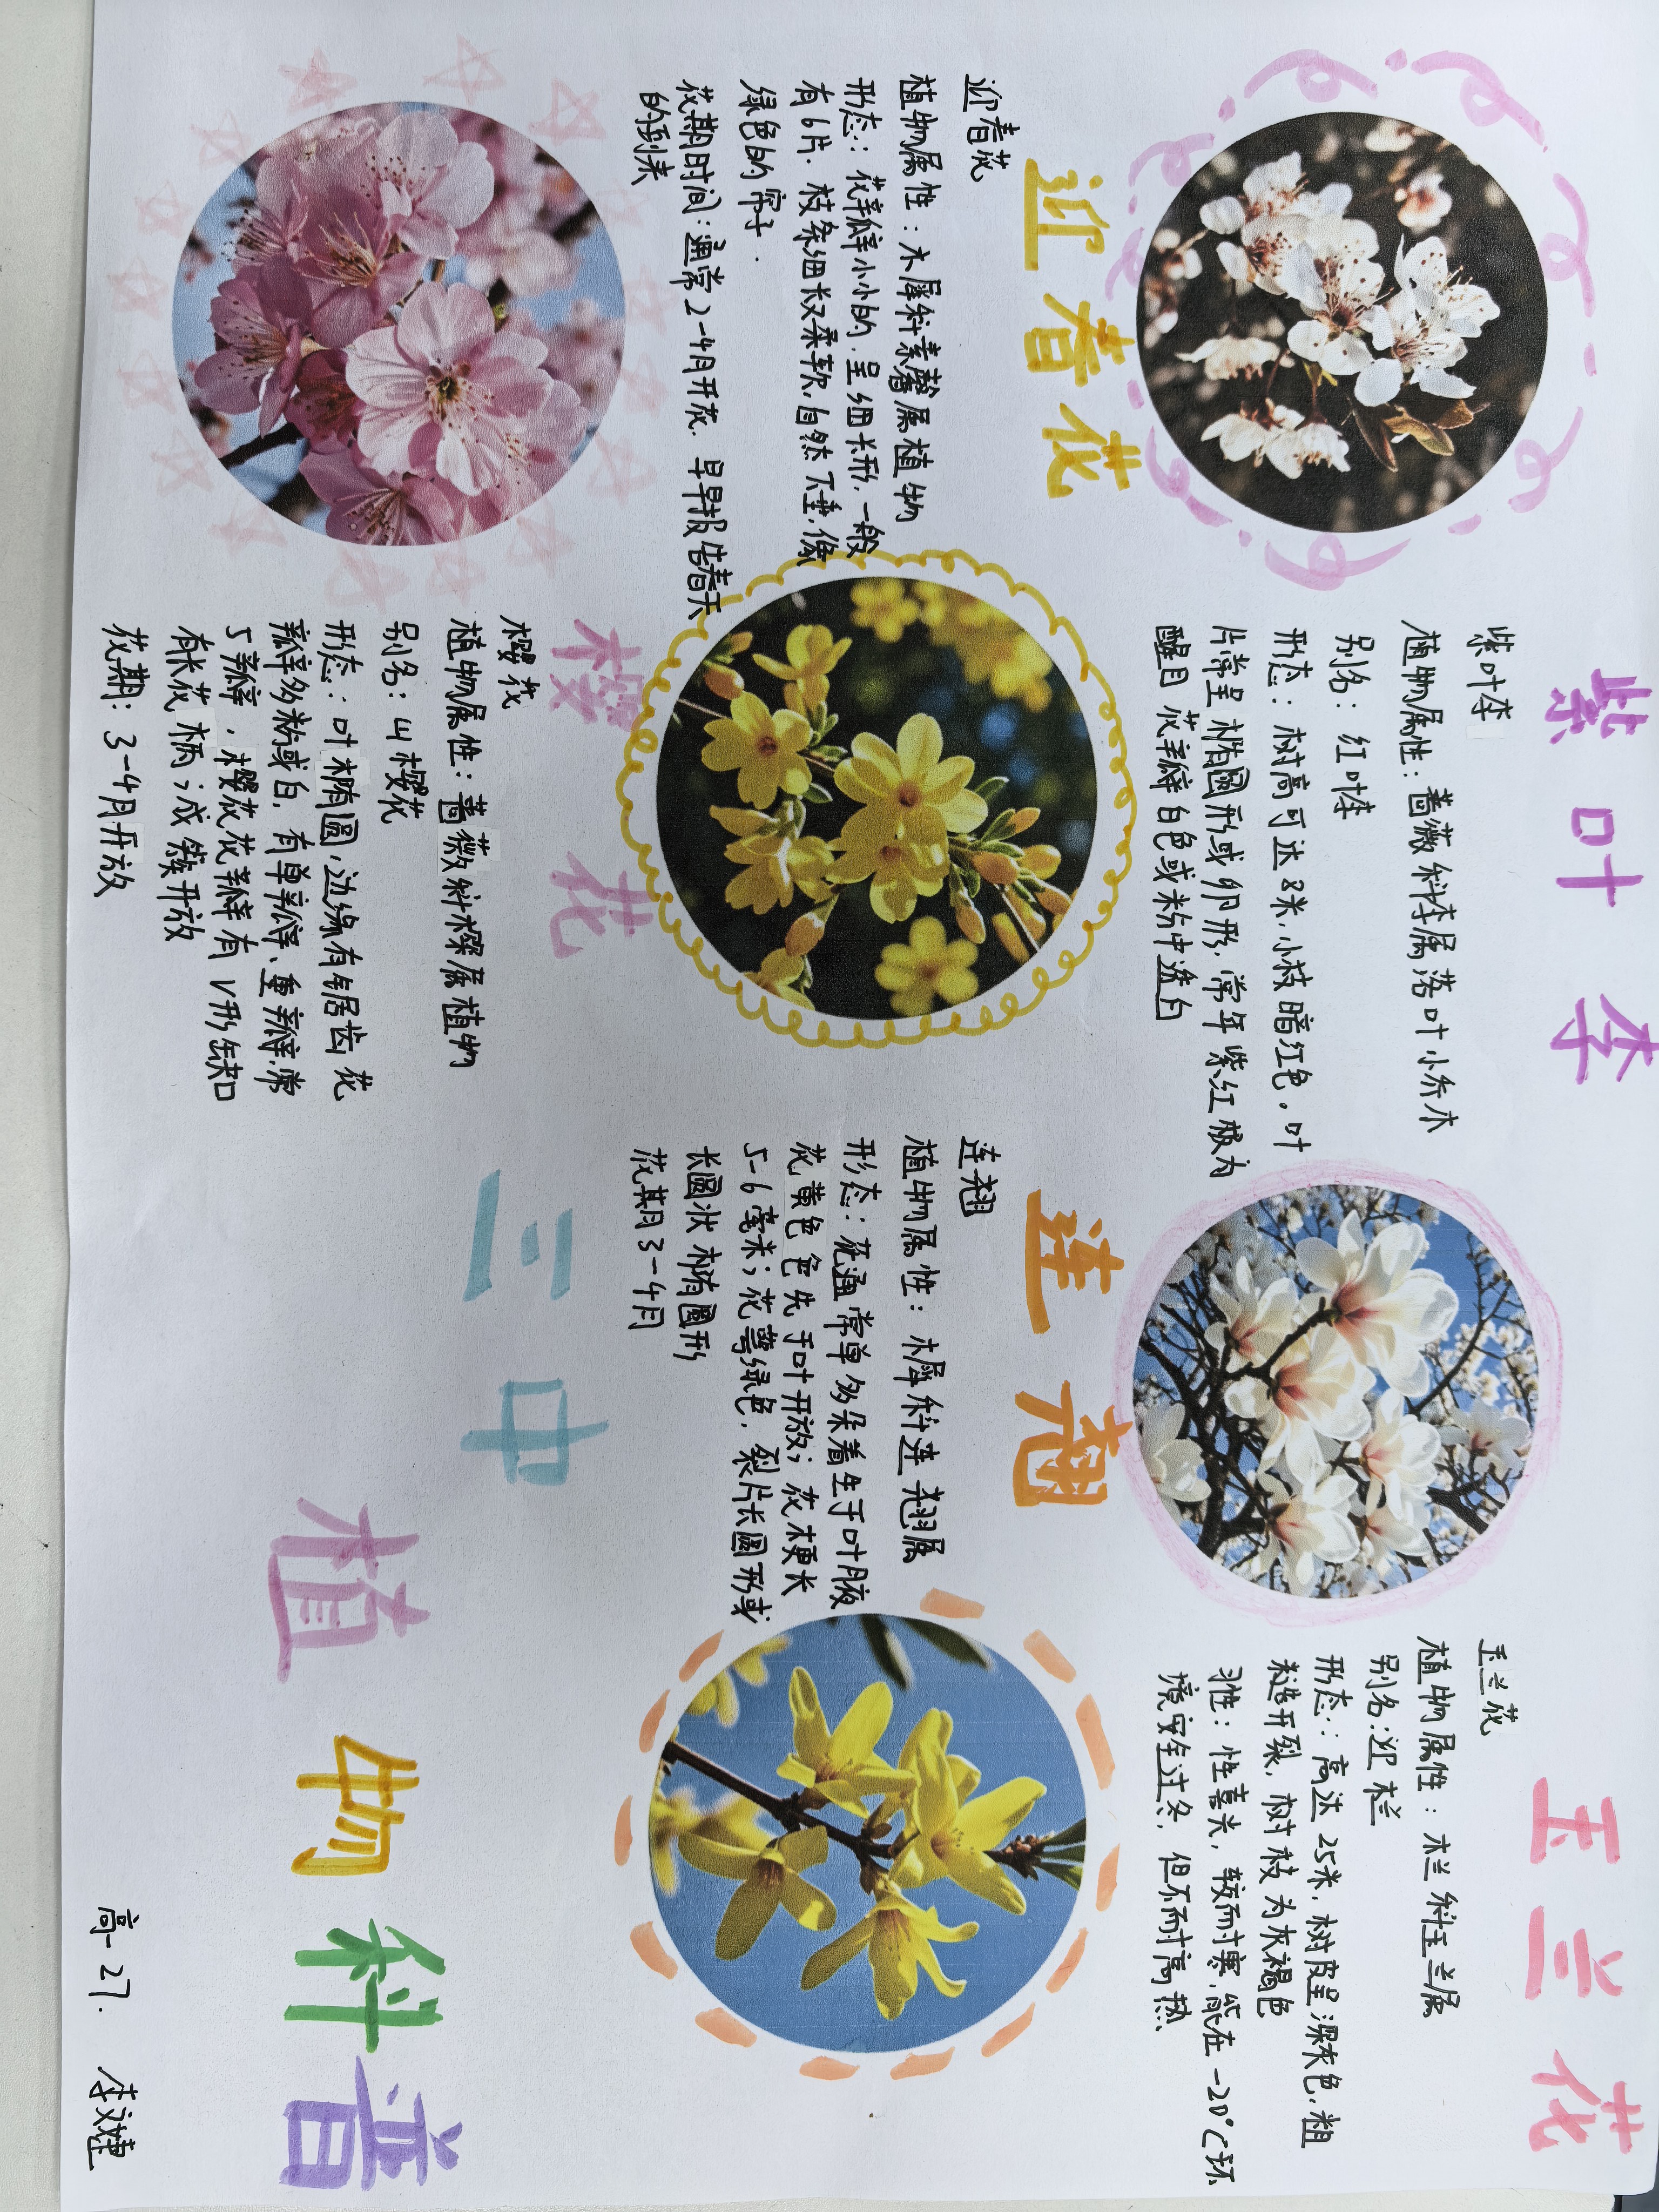 紫叶李
紫叶李
植物属性：蔷薇科李属落叶小乔木
别名：红叶李
形态：树高可达8米，小枝暗红色。叶
片常呈椭圆形或卵形，常年紫红极为
醒目 花瓣白色或粉中透白
玉兰花
玉兰花
植物属性：木兰科玉兰属
别名：迎栏
形态：高达25米，树皮呈深灰色，粗
糙开裂，树枝为灰褐色
习性：性喜光，较耐寒，能在-20°C环
境安全过冬，但不耐高热
迎春花
迎春花
植物属性：木犀科素馨属植物
形态：花瓣小小的 呈细长形，一般
有6片．枝条细长又柔软，自然下垂，像
绿色的帘子．
花期时间：通常2-4月开花．早早报告春天
的到来
连翘
连翘
植物属性：木犀科连翘属
形态：花通常单多朵着生于叶腋
花黄色 色先于叶开放；花梗长
5-6毫米；花萼绿色，裂片长圆形或
长圆状椭圆形
花期3-4月
樱花
樱花
植物属性：蔷薇科樱属植物
别名：山樱花
形态：叶椭圆，边缘有锯齿 花
瓣多粉或白，有单瓣、重瓣，常
5瓣，樱花花瓣有V形缺口
有长花柄，成簇开放
花期：3-4月开放
三中
植物科普
高一27．李婕